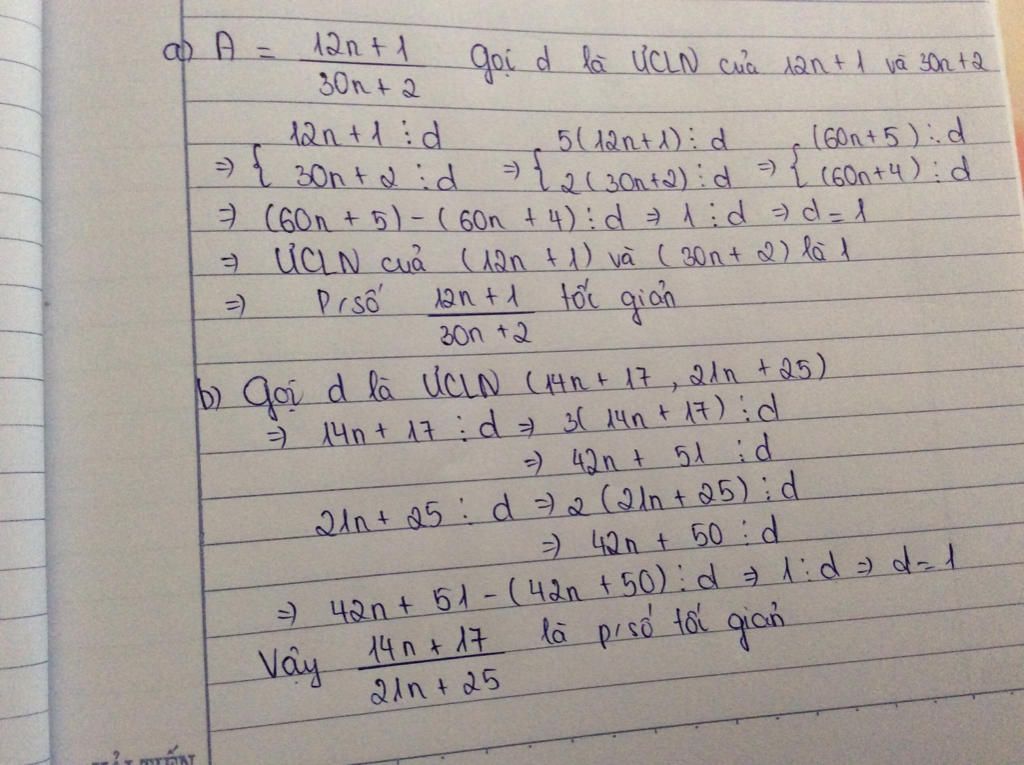 a) A = \frac{12n+1}{30n+2} Gọi d là ƯCLN của 12n+1 và 30n+2
⇒ { 12n+1 ⋮ d ; 30n+2 ⋮ d ⇒ { 5(12n+1) ⋮ d ; 2(30n+2) ⋮ d ⇒ { (60n+5) ⋮ d ; (60n+4) ⋮ d
⇒ (60n+5) - (60n+4) ⋮ d ⇒ 1 ⋮ d ⇒ d = 1
⇒ ƯCLN của (12n+1) và (30n+2) là 1
⇒ P/số \frac{12n+1}{30n+2} tối giản
b) Gọi d là ƯCLN (14n+17, 21n+25)
⇒ 14n+17 ⋮ d ⇒ 3(14n+17) ⋮ d
⇒ 42n + 51 ⋮ d
21n+25 ⋮ d ⇒ 2(21n+25) ⋮ d
⇒ 42n + 50 ⋮ d
⇒ 42n + 51 - (42n+50) ⋮ d ⇒ 1 ⋮ d ⇒ d = 1
Vậy \frac{14n+17}{21n+25} là p/số tối giản